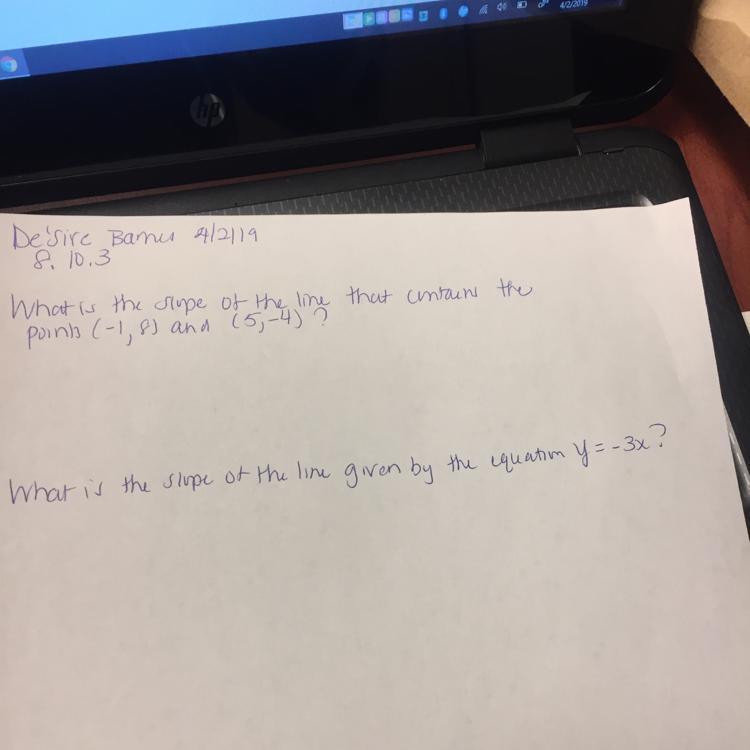 4/2/2019
hp
De'Sire Barnes 4/2/19
8. 10.3
What is the slope of the line that contains the
points (-1, 8) and (5, -4)?
What is the slope of the line given by the equation y = -3x?